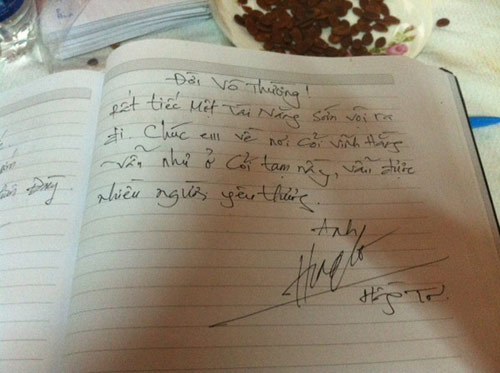 Đời Vô Thường!
Rất tiếc Một Tài Năng Sớm vội ra
đi. Chúc em về nơi Cõi Vĩnh Hằng
vẫn như ở Cõi tạm này, vẫn được
nhiều người yêu thương.
Anh